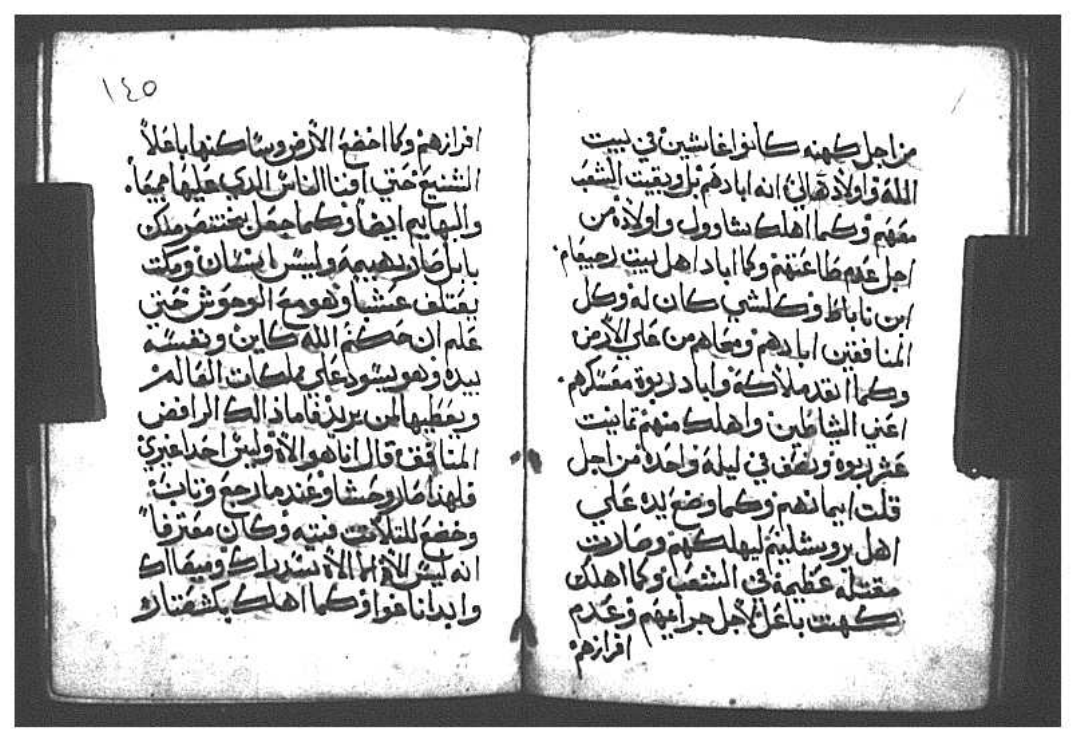 من اجل كهنه كانوا غاشين في بيت
الله واولاد هالي انه ابادهم بل وبقيت الشعب
معهم وكما اهلك شاوول واولاده من
اجل عدم طاعتهم وكما اباد اهل بيت رحبعام
ابن ناباط وكلشي كان له وكل
المنافقين ابادهم ومحاهم من علي الارض
وكما انقد ملاكه واباد ربوة معسكرهم
اعني الشياطين واهلك منهم تمانيت
عشر ربوه ونصف في ليله واحده من اجل
قلت ايمانهم وكما وضع يده علي
اهل يروشليم ليهلكهم وصارت
مقتله عظيمه في الشعب وكما اهلك
كهنت باعل لاجل جراعيهم وعدم
افرازهم
١٤٥
افرازهم وكما اخضع الارض وساكنها باعلا
الشنيع حتي افنا الناس الدي عليها جميعا
والبهايم ايضا وكما جعل بختنصر ملك
بابل صار بهيمة وليس انسان ومكت
يعتلف عشبا وهو مع الوحوش حتي
علم ان حكم الله كاين ونفسه
بيده وهو يسود علي مملكات العالم
ويعطيها لمن يريد فاما دالك الرافض
المنافق قال انا هو الاه وليس احد غيري
فلهدا صار وحشا وعندما رجع وتاب
وخضع للتلات فتيه وكان معترفا
انه ليس الاه الا الاه سدراك وميصاك
وابداناغوا وكما اهلك بلشصتار